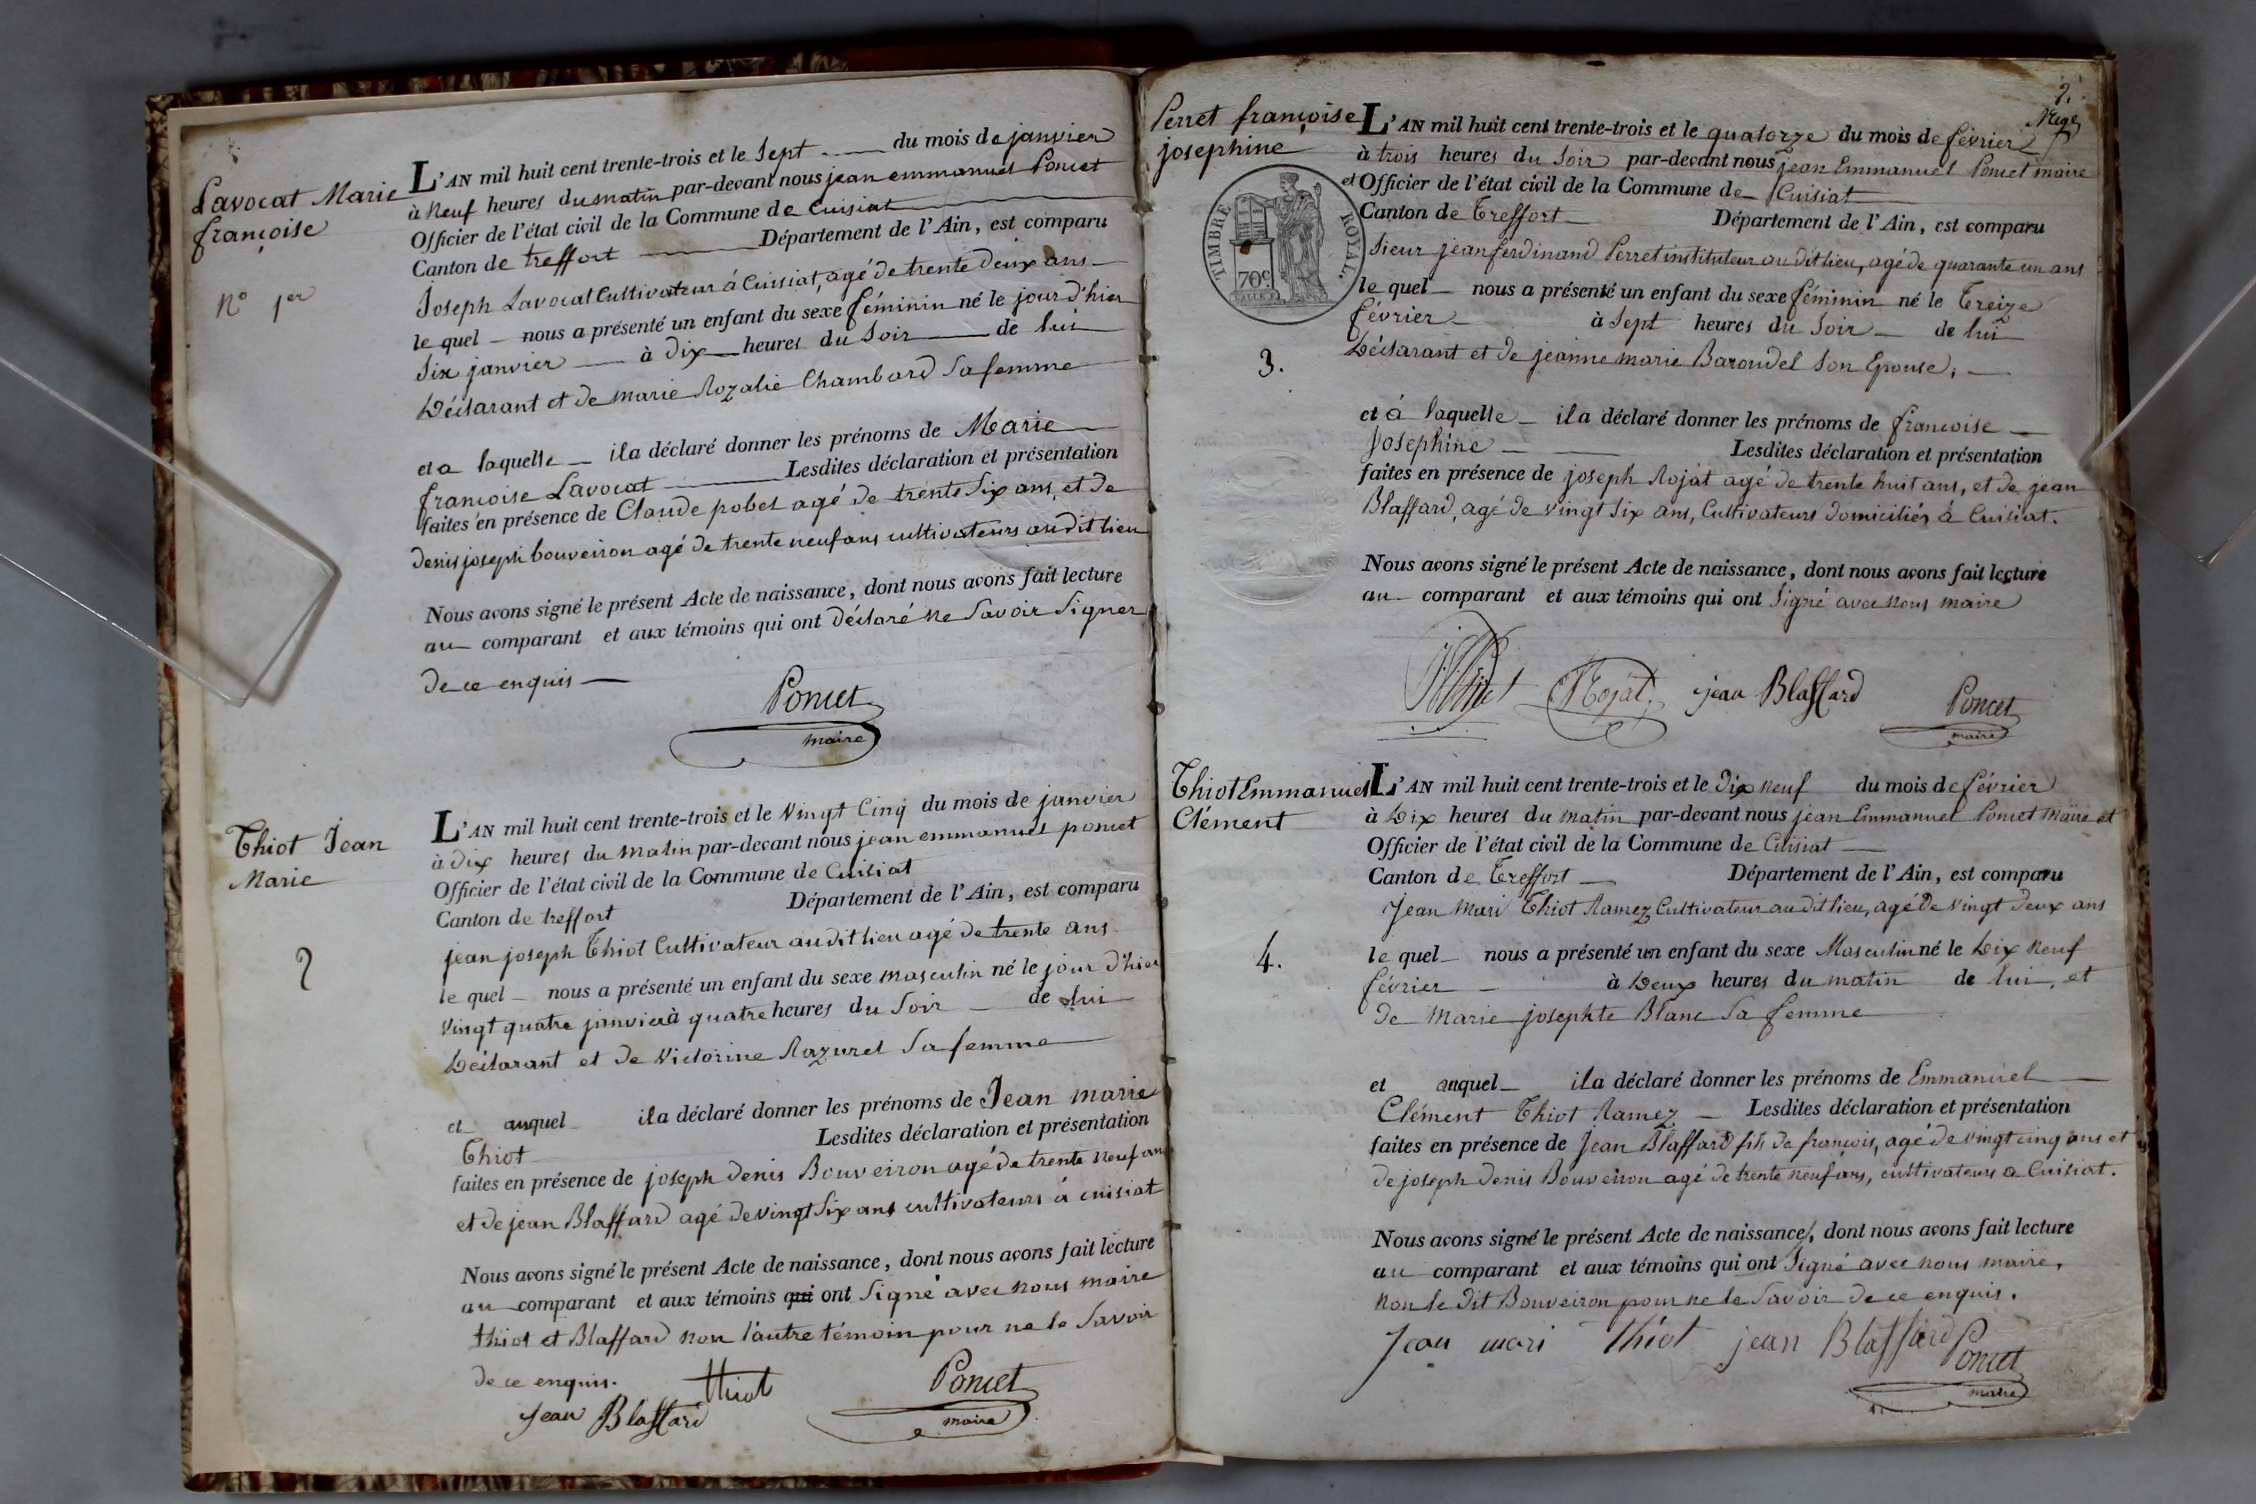 Lavocat Marie
françoise
N° 1er
L'AN mil huit cent trente-trois et le Sept du mois de janvier
à Neuf heures du matin par-devant nous jean emmanuel Poncet
Officier de l'état civil de la Commune de Cuisiat
Canton de treffort Département de l'Ain, est comparu
Joseph Lavocat Cultivateur à Cuisiat, agé de trente deux ans
le quel nous a présenté un enfant du sexe féminin né le jour d'hier
Six janvier à dix heures du Soir de lui
Déclarant et de marie Rozalie Chambard Sa femme
et a laquelle il a déclaré donner les prénoms de Marie
françoise Lavocat Lesdites déclaration et présentation
faites en présence de Claude pobel agé de trente Six ans, et de
denis joseph bouveiron agé de trente neuf ans cultivateurs audit lieu
Nous avons signé le présent Acte de naissance, dont nous avons fait lecture
au comparant et aux témoins qui ont déclaré ne Savoir Signer
de ce enquis
Poncet
maire
Thiot Jean
Marie
2
L'AN mil huit cent trente-trois et le Vingt Cinq du mois de janvier
à dix heures du matin par-devant nous jean emmanuel poncet
Officier de l'état civil de la Commune de Cuisiat
Canton de treffort Département de l'Ain, est comparu
jean joseph Thiot Cultivateur audit lieu agé de trente ans
le quel nous a présenté un enfant du sexe masculin né le jour d'hier
Vingt quatre janvier à quatre heures du Soir de lui
Déclarant et de Victorine Razurel Sa femme
et auquel il a déclaré donner les prénoms de Jean marie
Thiot Lesdites déclaration et présentation
faites en présence de joseph denis Bouveiron agé de trente neuf ans
et de jean Blaffard agé de vingt Six ans cultivateurs à cuisiat
Nous avons signé le présent Acte de naissance, dont nous avons fait lecture
au comparant et aux témoins qui ont Signé avec nous maire
thiot et Blaffard non l'autre témoin pour ne le Savoir
de ce enquis.
thiot
Poncet
Jean Blaffard
maire
2.
Perret françoise
josephine
TIMBRE ROYAL.
70c.
3.
L'AN mil huit cent trente-trois et le quatorze du mois de février
à trois heures du Soir par-devant nous jean Emmanuel Poncet maire
et Officier de l'état civil de la Commune de Cuisiat
Canton de Treffort Département de l'Ain, est comparu
Sieur jean ferdinand Perret instituteur au dit lieu, agé de quarante un ans
le quel nous a présenté un enfant du sexe féminin né le Treize
février à Sept heures du Soir de lui
Déclarant et de jeanne marie Baroudel Son Epouse,
et à laquelle il a déclaré donner les prénoms de francoise
Josephine Lesdites déclaration et présentation
faites en présence de joseph Rojat agé de trente huit ans, et de jean
Blaffard, agé de vingt Six ans, Cultivateurs domiciliés à Cuisiat.
Nous avons signé le présent Acte de naissance, dont nous avons fait lecture
au comparant et aux témoins qui ont Signé avec nous maire
Rojat jean Blaffard Poncet
maire
Thiot Emmanuel
Clément
4.
L'AN mil huit cent trente-trois et le Dix neuf du mois de février
à Dix heures du matin par-devant nous jean Emmanuel Poncet Maire et
Officier de l'état civil de la Commune de Cuisiat
Canton de Treffort Département de l'Ain, est comparu
Jean Mari Thiot Ramez Cultivateur au dit lieu, agé De vingt deux ans
le quel nous a présenté un enfant du sexe Masculin né le Dix neuf
février à Deux heures du matin de lui, et
de Marie josephte Blanc Sa femme
et auquel il a déclaré donner les prénoms de Emmanuel
Clément Thiot Ramez Lesdites déclaration et présentation
faites en présence de Jean Blaffard fils de françois, agé de vingt cinq ans et
de joseph denis Bouveiron agé de trente neuf ans, cultivateurs a Cuisiat.
Nous avons signé le présent Acte de naissance, dont nous avons fait lecture
au comparant et aux témoins qui ont Signé avec nous maire,
non le Dit Bouveiron pour ne le Savoir de ce enquis.
Jean mari Thiot jean Blaffard Poncet
maire